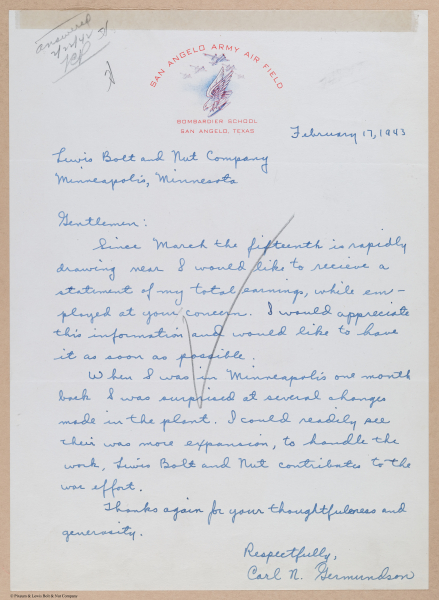 answered
2/22/42
SAN ANGELO ARMY AIR FIELD
BOMBARDIER SCHOOL
SAN ANGELO, TEXAS
February 17, 1943
Lewis Bolt and Nut Company
Minneapolis, Minnesota
Gentlemen:
Since March the fifteenth is rapidly
drawing near I would like to recieve a
statement of my total earnings, while em-
ployed at your concern. I would appreciate
this information and would like to have
it as soon as possible.
When I was in Minneapolis one month
back I was surprised at several changes
made in the plant. I could readily see
their was more expansion, to handle the
work, Lewis Bolt and Nut contributes to the
war effort.
Thanks again for your thoughtfulness and
generosity.
Respectfully,
Carl N. Germundson
© Photani & Lewis Bolt & Nut Company